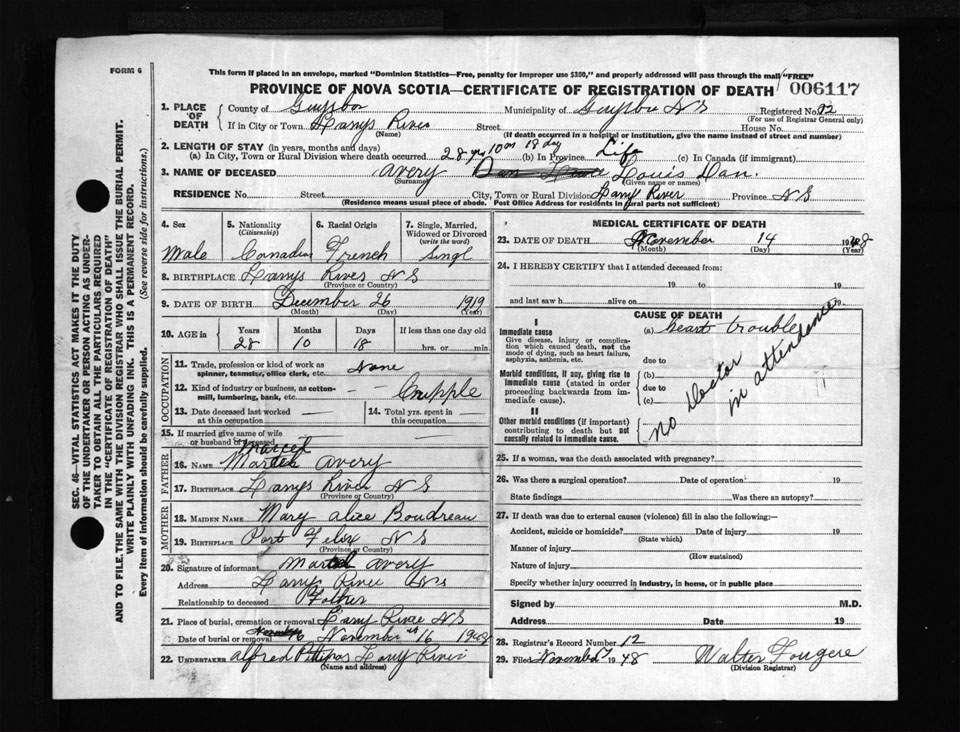 FORM 6
This form if placed in an envelope, marked "Dominion Statistics—Free, penalty for improper use $300," and properly addressed will pass through the mail "FREE"
PROVINCE OF NOVA SCOTIA—CERTIFICATE OF REGISTRATION OF DEATH 006117
1. PLACE OF DEATH County of Guysboro Municipality of Guysboro N S Registered No. 12
(For use of Registrar General only)
If in City or Town Larrys River Street House No.
(Name) (If death occurred in a hospital or institution, give the name instead of street and number)
2. LENGTH OF STAY (in years, months and days)
(a) In City, Town or Rural Division where death occurred 28 yrs 10 ms 18 day (b) In Province Life (c) In Canada (if immigrant)
3. NAME OF DECEASED Avery Louis Dan.
(Surname) (Given name or names)
RESIDENCE No. Street City, Town or Rural Division Larrys River Province N S
(Residence means usual place of abode. Post Office Address for residents in rural parts not sufficient)
4. Sex 5. Nationality (Citizenship) 6. Racial Origin 7. Single, Married, Widowed or Divorced (write the word)
Male Canadian French Singl
8. BIRTHPLACE Larrys River N S
(Province or Country)
9. DATE OF BIRTH December 26 1919
(Month) (Day) (Year)
10. AGE in Years Months Days If less than one day old
28 10 18 hrs. or min.
OCCUPATION
11. Trade, profession or kind of work as spinner, teamster, office clerk, etc. None
12. Kind of industry or business, as cotton-mill, lumbering, bank, etc. Cripple
13. Date deceased last worked at this occupation 14. Total yrs. spent in this occupation
15. If married give name of wife or husband of deceased
FATHER
16. NAME Marcel Avery
17. BIRTHPLACE Larrys River N S
(Province or Country)
MOTHER
18. MAIDEN NAME Mary Alice Boudreau
19. BIRTHPLACE Port Felix N S
(Province or Country)
20. Signature of informant Avery
Address Larrys River N S
Relationship to deceased Father
21. Place of burial, cremation or removal Larry River N S
Date of burial or removal November 16 1948
22. UNDERTAKER Alfred Pettipas Larry River
(Name and address)
MEDICAL CERTIFICATE OF DEATH
23. DATE OF DEATH November 14 1948
(Month) (Day) (Year)
24. I HEREBY CERTIFY that I attended deceased from:
19 to 19
and last saw h alive on 19
CAUSE OF DEATH
I
Immediate cause (a) heart trouble
Give disease, injury or complication which caused death, not the mode of dying, such as heart failure, asphyxia, asthenia, etc. due to
Morbid conditions, if any, giving rise to immediate cause (stated in order proceeding backwards from immediate cause). (b) due to (c)
II
Other morbid conditions (if important) contributing to death but not causally related to immediate cause.
no Doctor in attendance
25. If a woman, was the death associated with pregnancy?
26. Was there a surgical operation? Date of operation 19
State findings Was there an autopsy?
27. If death was due to external causes (violence) fill in also the following:—
Accident, suicide or homicide? Date of injury 19
(State which)
Manner of injury
(How sustained)
Nature of injury
Specify whether injury occurred in industry, in home, or in public place
Signed by M.D.
Address Date 19
28. Registrar's Record Number 12
29. Filed November 17 1948 Walter Fougere
(Division Registrar)
SEC. 46—VITAL STATISTICS ACT MAKES IT THE DUTY
OF THE UNDERTAKER OR PERSON ACTING AS UNDERTAKER
TO OBTAIN ALL THE PARTICULARS REQUIRED
IN THE "CERTIFICATE OF REGISTRATION OF DEATH"
AND TO FILE THE SAME WITH THE DIVISION REGISTRAR WHO SHALL ISSUE THE BURIAL PERMIT.
WRITE PLAINLY WITH UNFADING INK. THIS IS A PERMANENT RECORD.
Every item of information should be carefully supplied. (See reverse side for instructions.)